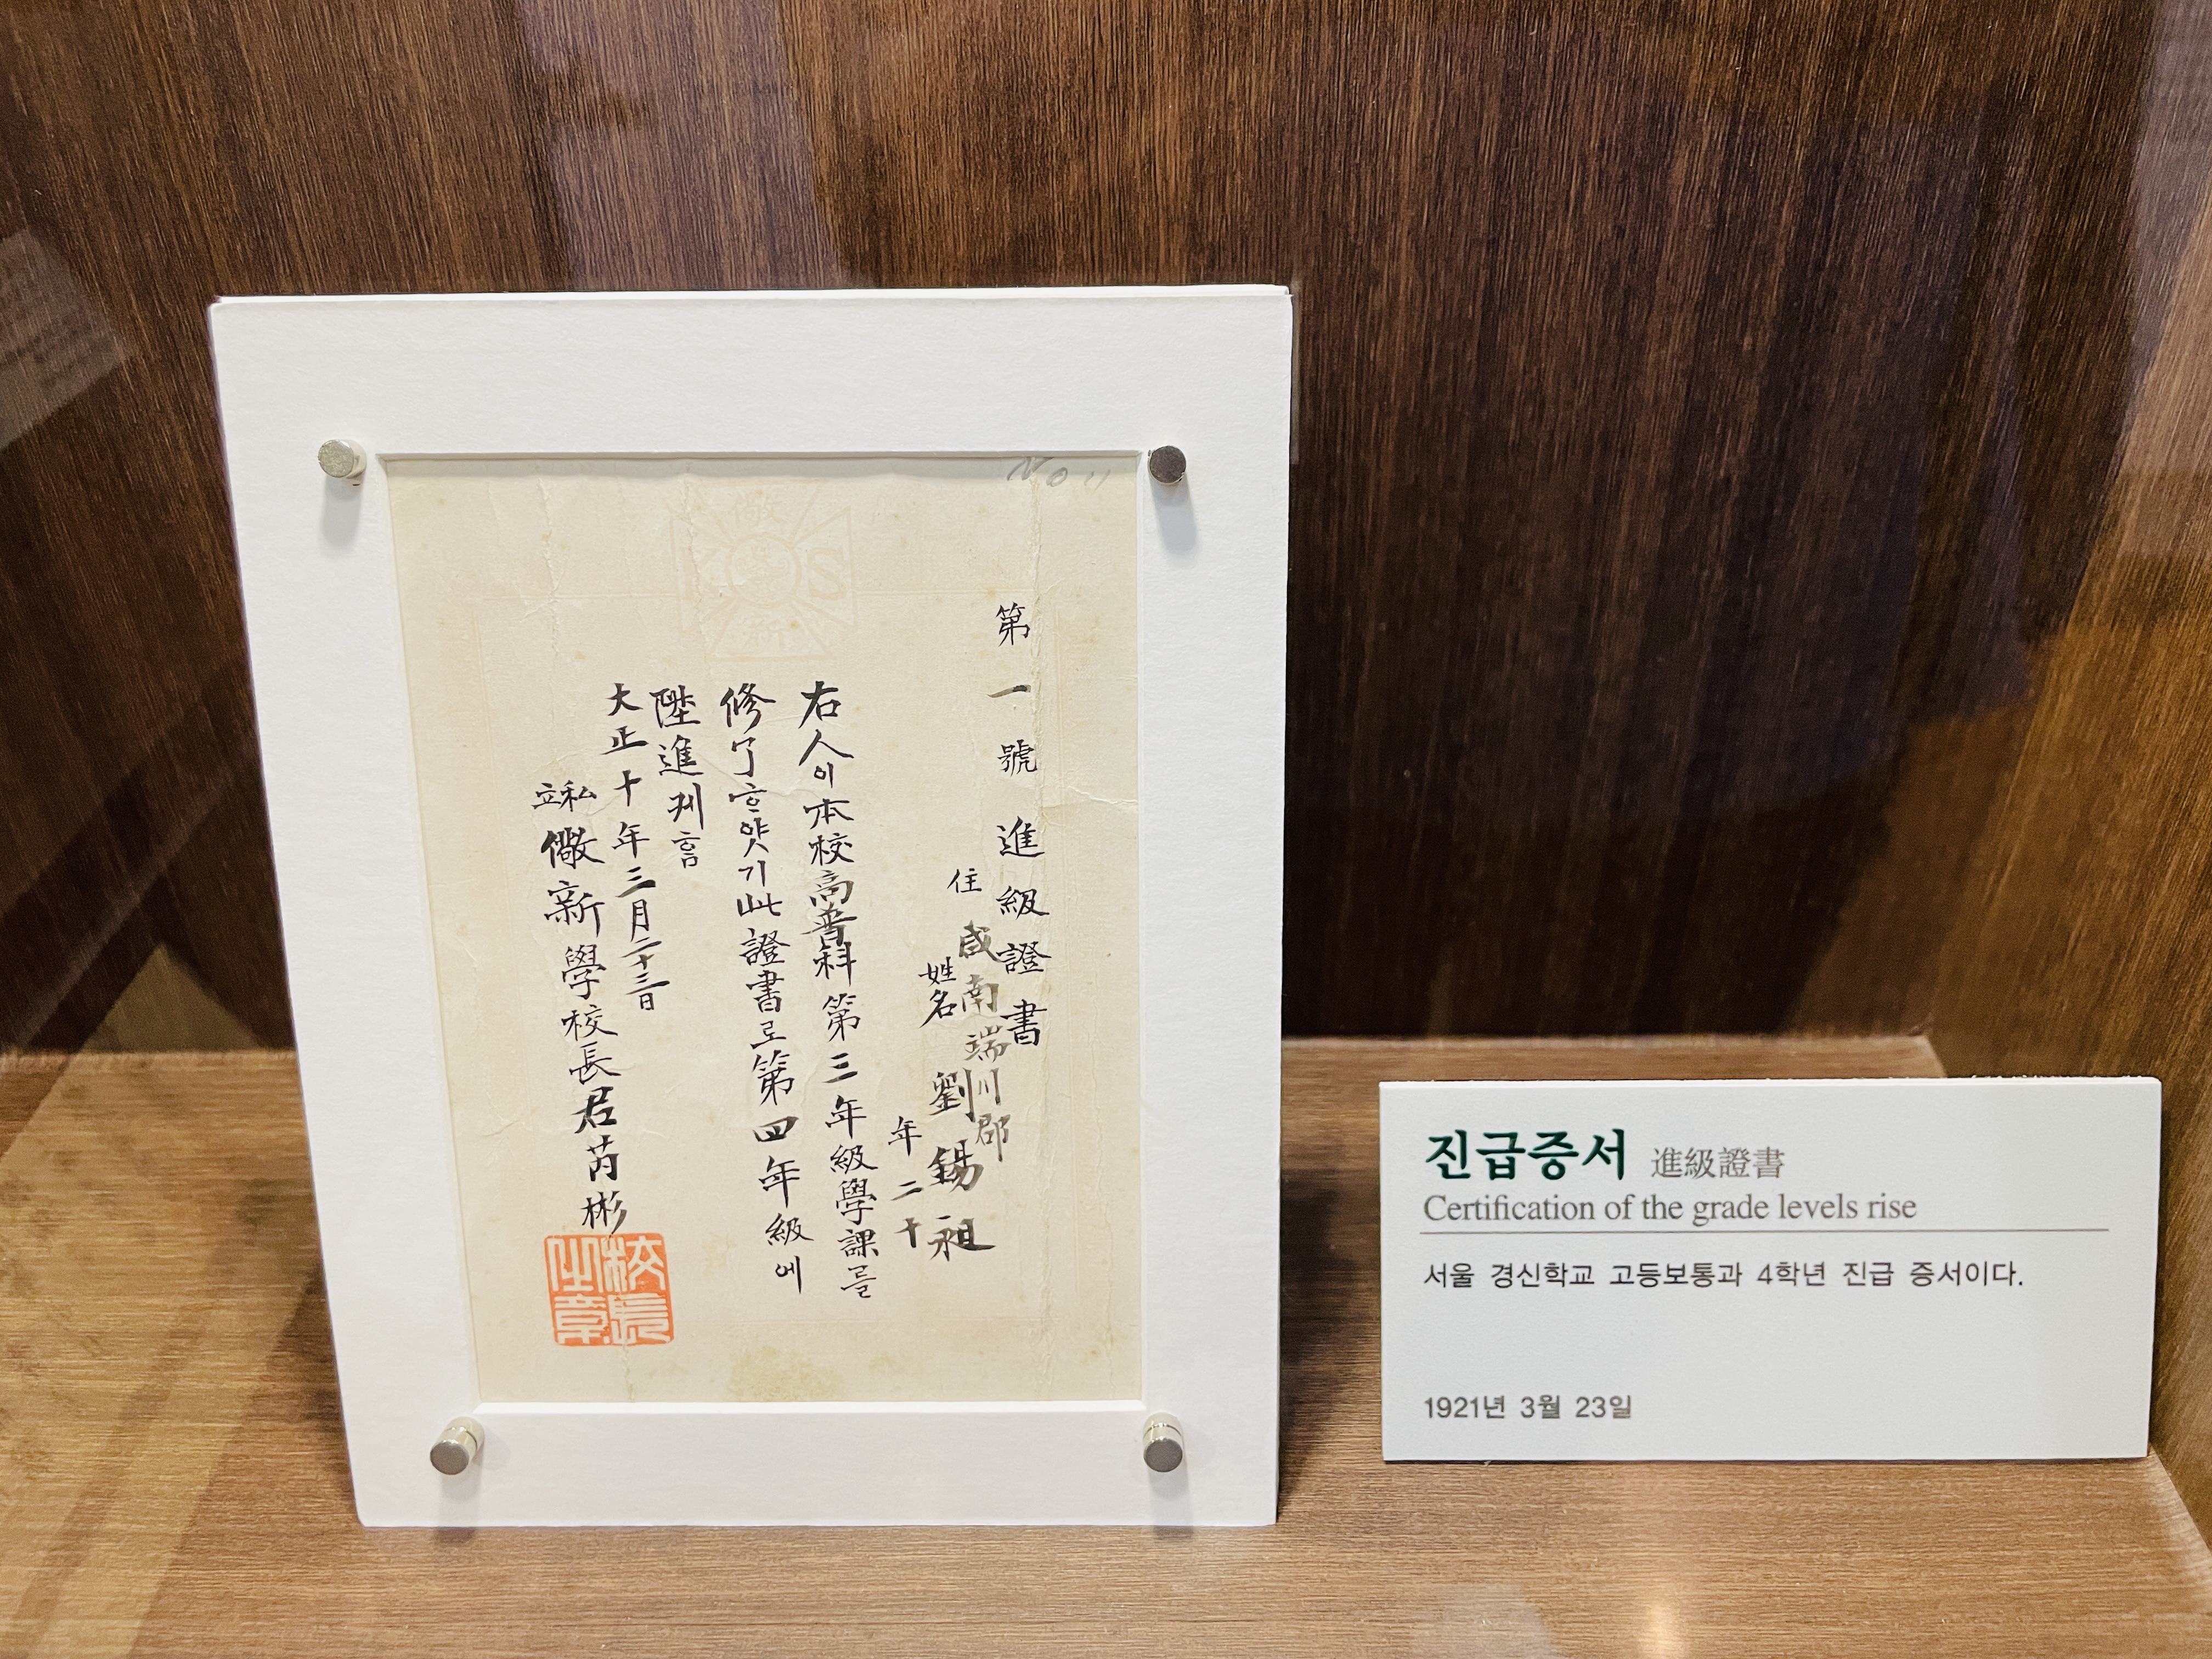 No 11
儆
K S
第一號 進級證書
住 咸南端川郡
姓名 劉錫祖
年二十
右人이本校高普科第三年級學課를
修了하얏기此證書로第四年級에
陞進케홈
大正十年三月二十三日
私立儆新學校長君芮彬
校長之章
진급증서 進級證書
Certification of the grade levels rise
서울 경신학교 고등보통과 4학년 진급 증서이다.
1921년 3월 23일